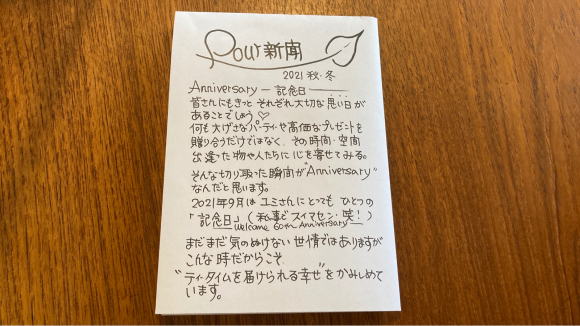 Pour新聞
2021 秋・冬
Anniversary ― 記念日 ―
皆さんにもきっと それぞれ大切な思い日が
あることでしょう♡
何も大げさなパーティーや高価なプレゼントを
贈り合うだけではなく、その時間・空間
出逢った物や人たちに心を寄せてみる。
そんな切り取った瞬間が"Anniversary"
なんだと思います。
2021年9月は ユミさんにとっても ひとつの
「記念日」(私事でスイマセン・笑!)
Welcome 60th Anniversary
まだまだ気のぬけない世情ではありますが
こんな時だからこそ
"ティータイムを届けられる幸せ"をかみしめて
います。